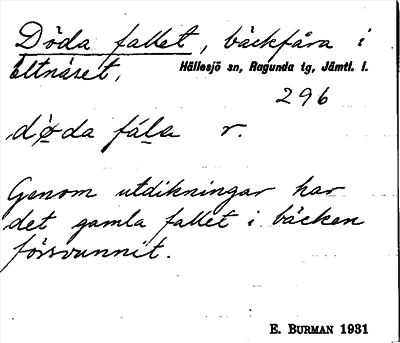 Döda fallet, bäckfåra i
Ältnäset, Hällesjö sn, Ragunda tg, Jämtl. l.
296
dø̀da fála r.
Genom utdikningar har
det gamla fallet i bäcken
försvunnit.
E. BURMAN 1931